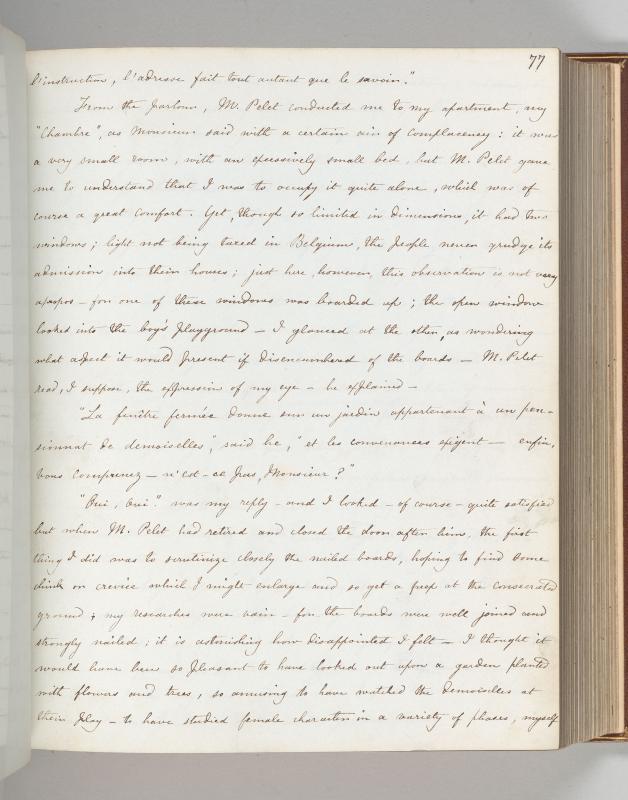 77
l'instruction, l'adresse fait tout autant que le savoir."
From the parlour, M. Pelet conducted me to my apartment, my
"Chambre", as Monsieur said with a certain air of complacency: it was
a very small room, with an excessively small bed, but M. Pelet gave
me to understand that I was to occupy it quite alone, which was of
course a great comfort. Yet, though so limited in dimensions, it had two
windows; light not being taxed in Belgium, the people never grudge its
admission into their houses; just here, however, this observation is not very
apropos - for one of these windows was boarded up; the open window
looked into the boy's playground — I glanced at the other, as wondering
what aspect it would present if disencumbered of the boards — M. Pelet
read, I suppose, the expression of my eye - he explained -
"La fenêtre fermée donne sur un jardin appartenant à un pen-
sionnat de demoiselles", said he, "et les convenances exigent — enfin,
vous comprenez — n'est-ce pas, Monsieur?"
"Oui, Oui". was my reply - and I looked - of course - quite satisfied
but when M. Pelet had retired and closed the door after him, the first
thing I did was to scrutinize closely the nailed boards, hoping to find some
chink or crevice which I might enlarge and so get a peep at the consecrated
ground; my researches were vain - for the boards were well joined and
strongly nailed; it is astonishing how disappointed I felt — I thought it
would have been so pleasant to have looked out upon a garden planted
with flowers and trees, so amusing to have watched the demoiselles at
their play - to have studied female character in a variety of phases, myself